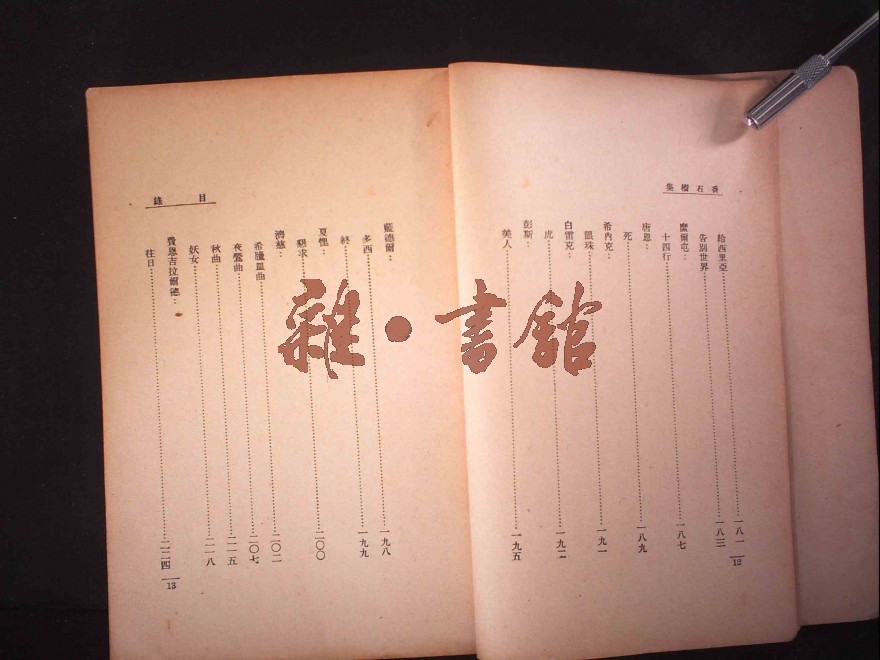 番石榴集
給西里亞……一八一
告別世界……一八三
糜爾屯：
十四行……一八七
唐恩：
死……一八九
希內克：
眼珠……一九一
白雷克：
虎……一九二
彭斯：
美人……一九五
12
目錄
藍德爾：
多西……一九八
終……一九九
夏悝：
懇求……二〇〇
濟慈：
希臘皿曲……二〇二
夜鶯曲……二〇七
秋曲……二一五
妖女……二一八
費恩吉拉爾德：
往日……二二四
13
雜·書館